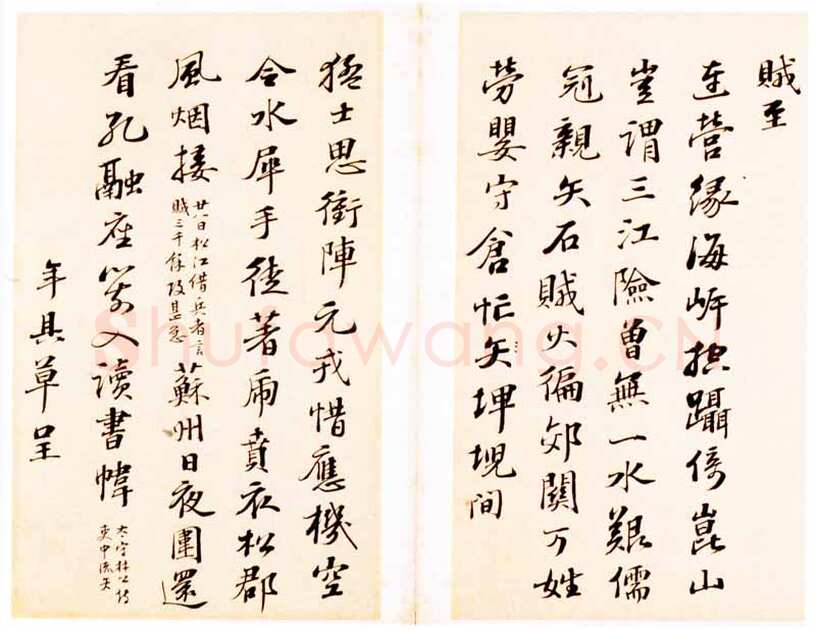 賊至
連營緣海岸躡倚崑山
豈謂三江險曾無一水艱儒
冠親矢石賊火徧郊關万姓
勞嬰守倉忙矢埤堄間
猛士思衝陣元戎惜應機空
令水犀手徒著虎賁衣松郡
風烟接廿日松江借兵者言
賊三千餘攻甚急
蘇州日夜圍還
看孔融座箭入讀書幃太守林公傍
吏中流矢
年具草呈
Shufawang.CN